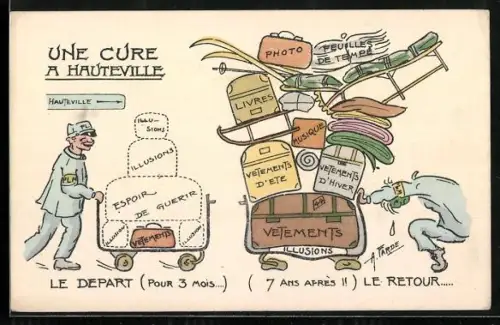 UNE CURE
A HAUTEVILLE
HAUTEVILLE
ILLU-
SIONS
ILLUSIONS
ESPOIR
DE GUERIR
ILLUSIONS
VETEMENTS
PHOTO
FEUILLES
DE TEMPÉ
LIVRES
MUSIQUE
VETEMENTS
D'ETÉ
VETEMENTS
D'HIVER
VETEMENTS
ILLUSIONS
A. FARDE
LE DEPART (POUR 3 MOIS...) ( 7 ANS APRÈS !! ) LE RETOUR.....